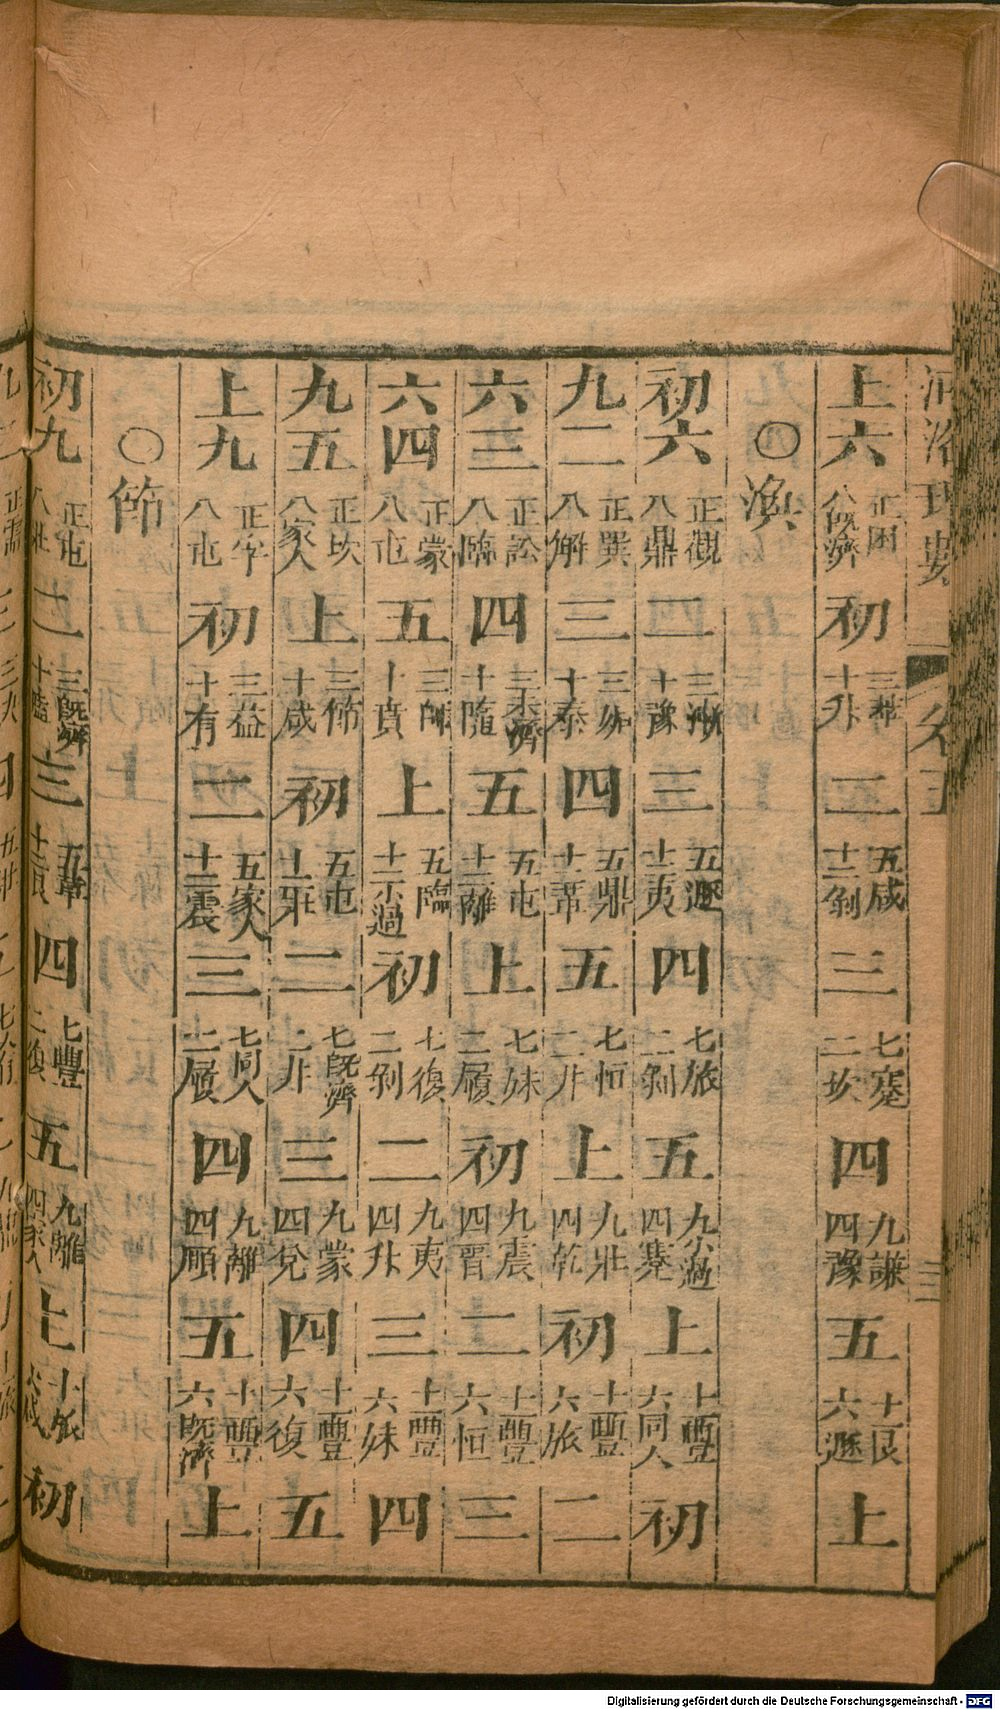 河洛理數 卷五 三
上六 正困 八既濟 初 三萃 十升 二 五咸 十二剝 三 七蹇 二坎 四 九謙 四豫 五 十一艮 六遯 上
〇渙
初六 正觀 八鼎 二 三漸 十豫 三 五遯 十二夷 四 七旅 二剝 五 九小過 四蹇 上 十一豐 六同人 初
九二 正巽 八解 三 三姤 十泰 四 五鼎 十二革 五 七恒 二升 上 九壯 四乾 初 十一豐 六旅 二
六三 正訟 八臨 四 三未濟 十隨 五 五屯 十二離 上 七妹 二履 初 九震 四晉 二 十一豐 六恒 三
六四 正蒙 八屯 五 三師 十賁 上 五臨 十二小過 初 七復 二剝 二 九夷 四升 三 十一豐 六妹 四
九五 正坎 八家人 上 三節 十咸 初 五屯 十二壯 二 七既濟 二升 三 九蒙 四兌 四 十一豐 六復 五
上九 正孚 八屯 初 三益 十有 二 五家人 十二震 三 七同人 二履 四 九離 四頤 五 十一豐 六既濟 上
〇節
初九 正屯 八壯 二 三既濟 十嗑 三 五革 十二艮 四 七豐 二復 五 九離 四家人 上 十一旅 初
Digitalisierung gefördert durch die Deutsche Forschungsgemeinschaft - DFG